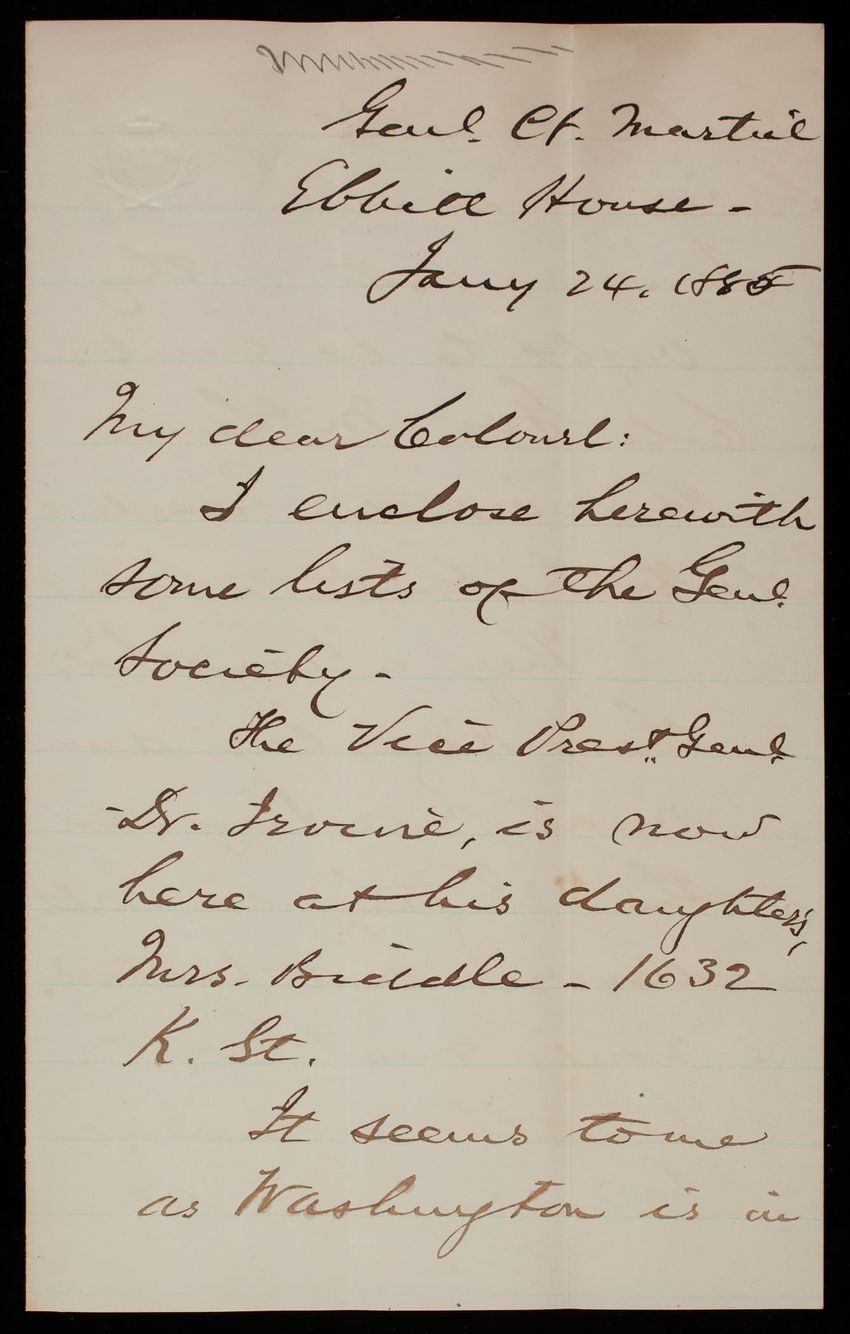 Genl. Ct. Martial
Ebbitt House -
Jany 24, 1885
My dear Colonel:
I enclose herewith
some lists of the Genl.
Society -
The Vice Prest. Genl.
Dr. Irvine, is now
here at his daughter's,
Mrs. Biddle - 1632
K. St.
It seems to me
as Washington is in